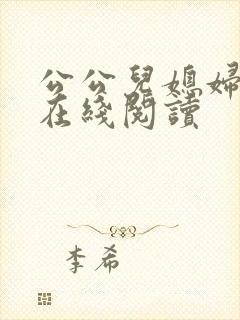 公公兒媳婦
在綫閱讀
李希